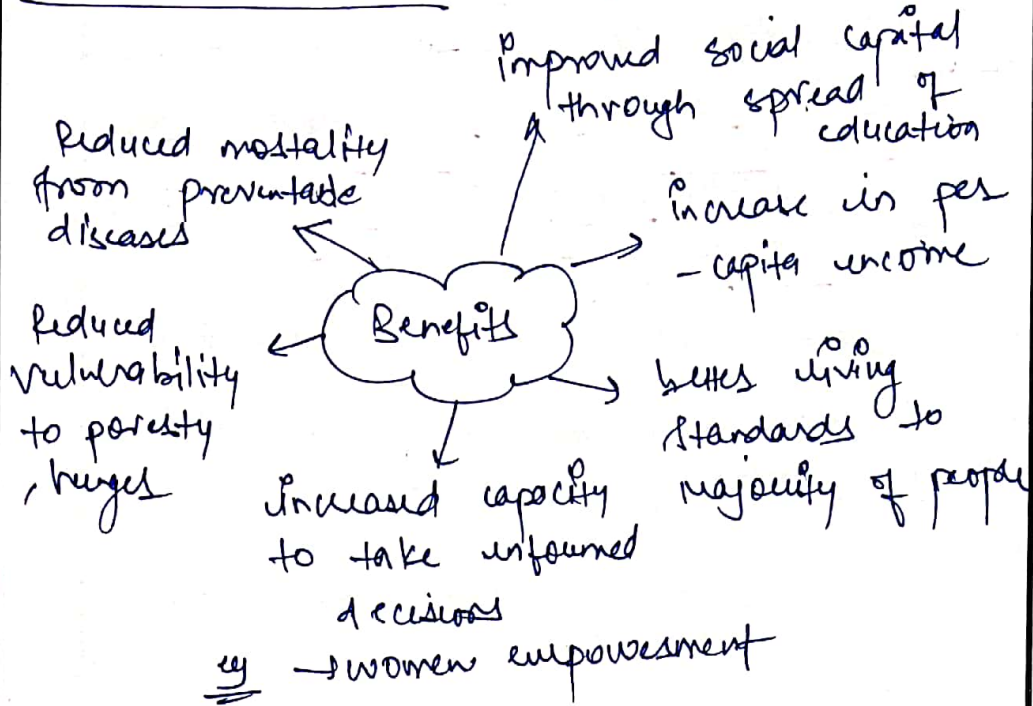 Improved social capital
through spread of
education
Reduced mortality
from preventable
diseases
increase in per
- capita income
Benefits
Reduced
vulnerability
to poverty
, hunger
better living
standards to
majority of people
Increased capacity
to take informed
decisions
eg → women empowerment